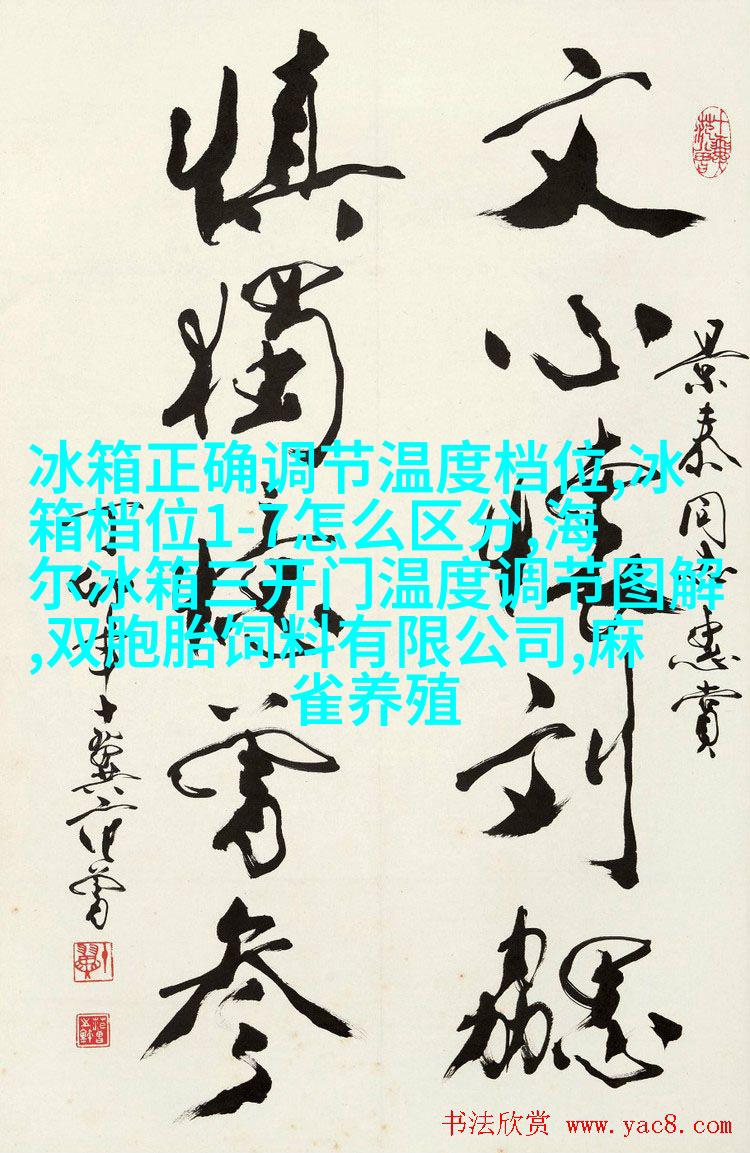 文心
刘勰
景泰同志惠賞
慎獨
曾参
丁卯年十翼范曾
冰箱正确调节温度档位,冰
箱档位1-7怎么区分,海
尔冰箱三开门温度调节图解
,双胞胎饲料有限公司,麻
雀养殖
书法欣赏 www.yac8.com